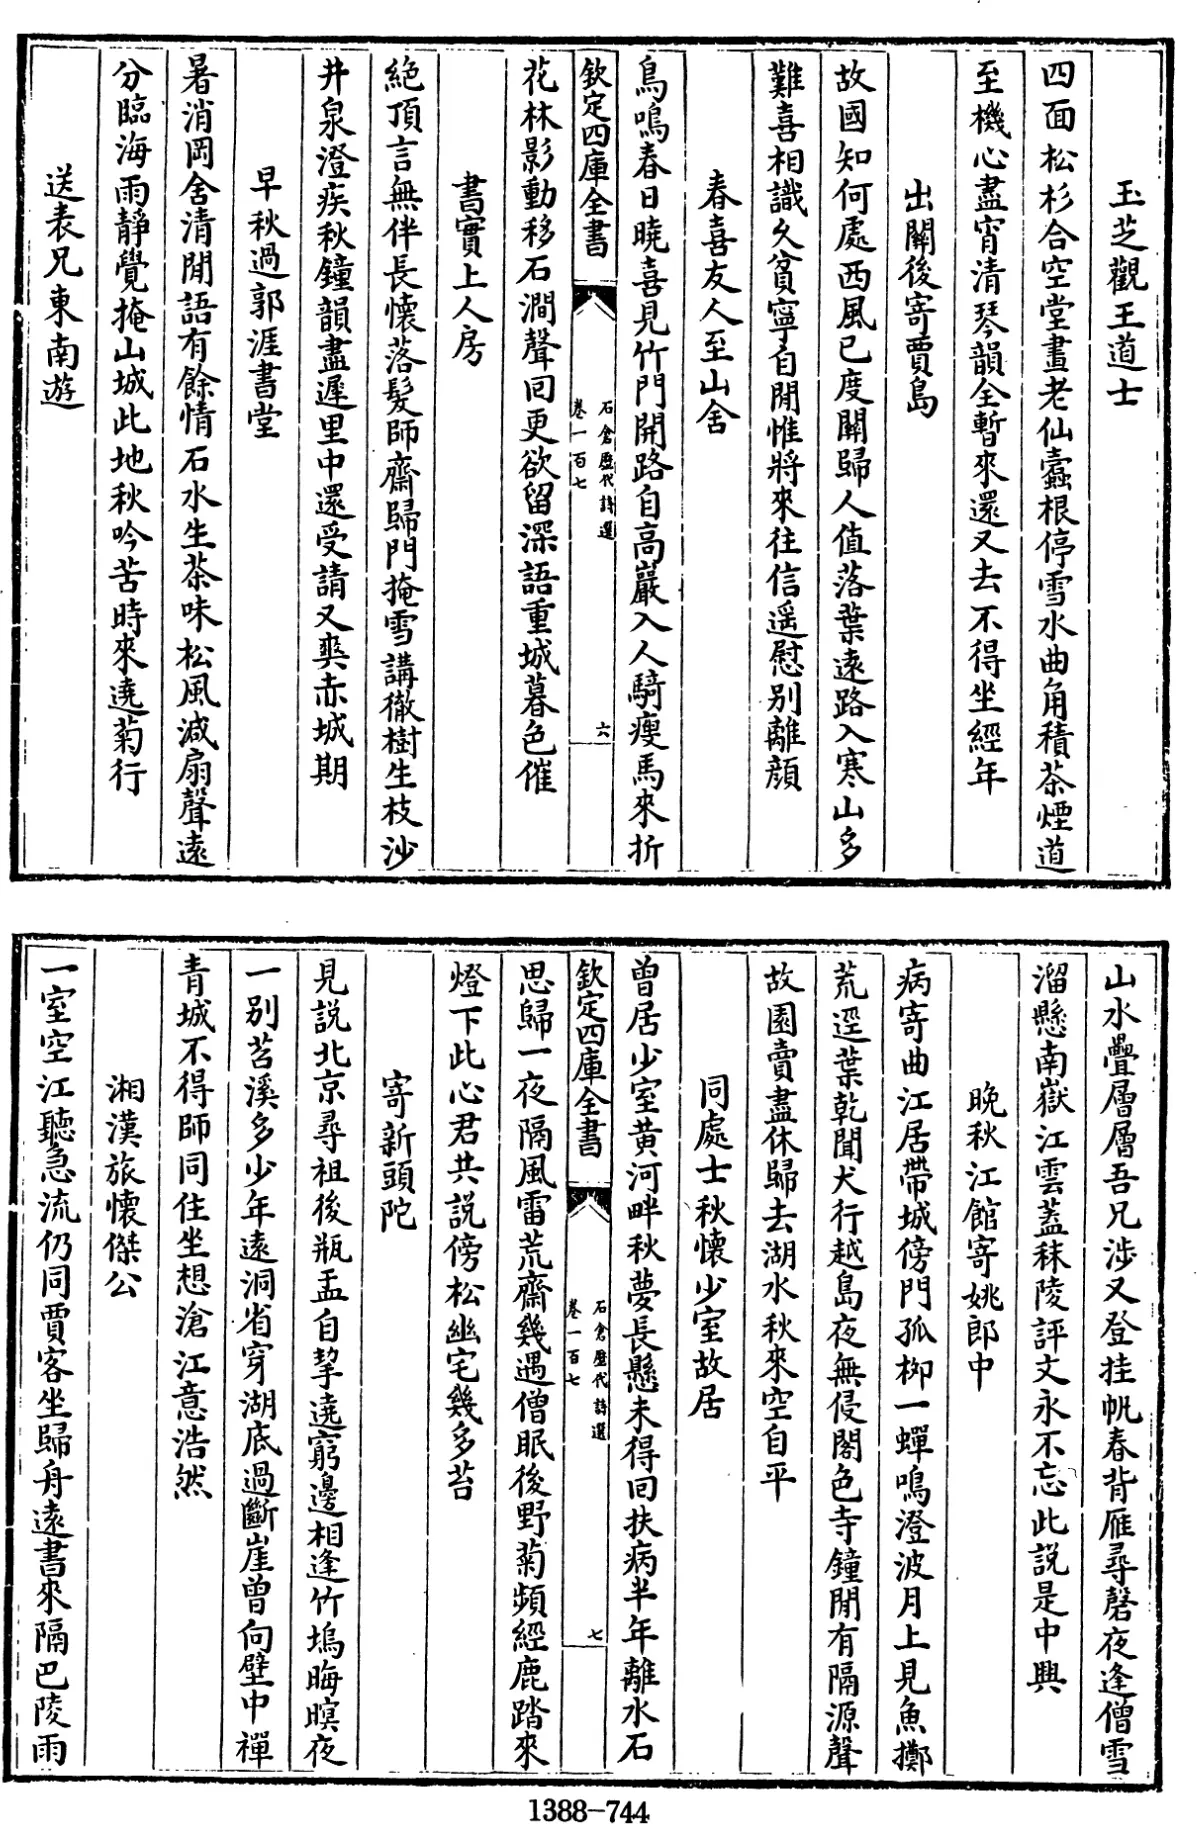 玉芝觀王道士
四面松杉合空堂畫老仙蠹根停雪水曲角積茶煙道
至機心盡宵清琴韻全暫來還又去不得坐經年
出關後寄賈島
故國知何處西風已度關歸人值落葉遠路入寒山多
難喜相識久貧寧自閒惟將來往信遥慰别離顔
春喜友人至山舍
鳥鳴春日曉喜見竹門開路自高巖入人騎瘦馬來折
欽定四庫全書
石倉歷代詩選
卷一百七
六
花林影動移石澗聲回更欲留深語重城暮色催
書實上人房
絶頂言無伴長懷落髮師齋歸門掩雪講徹樹生枝沙
井泉澄疾秋鐘韻盡遲里中還受請又爽赤城期
早秋過郭涯書堂
暑消岡舍清閒語有餘情石水生茶味松風減扇聲遠
分臨海雨靜覺掩山城此地秋吟苦時來遶菊行
送表兄東南遊
山水疊層層吾兄涉又登挂帆春背雁尋磬夜逢僧雪
溜懸南嶽江雲蓋秣陵評文永不忘此説是中興
晚秋江館寄姚郎中
病寄曲江居帶城傍門孤栁一蟬鳴澄波月上見魚擲
荒逕葉乾聞犬行越島夜無侵閣色寺鐘閒有隔源聲
故園賣盡休歸去湖水秋來空自平
同處士秋懷少室故居
曽居少室黄河畔秋夢長懸未得回扶病半年離水石
欽定四庫全書
石倉歷代詩選
卷一百七
七
思歸一夜隔風雷荒齋幾遇僧眠後野菊頻經鹿踏來
燈下此心君共説傍松幽宅幾多苔
寄新頭陀
見説北京尋祖後瓶盂自挈遶窮邊相逢竹塢晦暝夜
一别苕溪多少年遠洞省穿湖底過斷崖曽向壁中禪
青城不得師同住坐想滄江意浩然
湘漢旅懷傑公
一室空江聽急流仍同賈客坐歸舟遠書來隔巴陵雨
1388-744